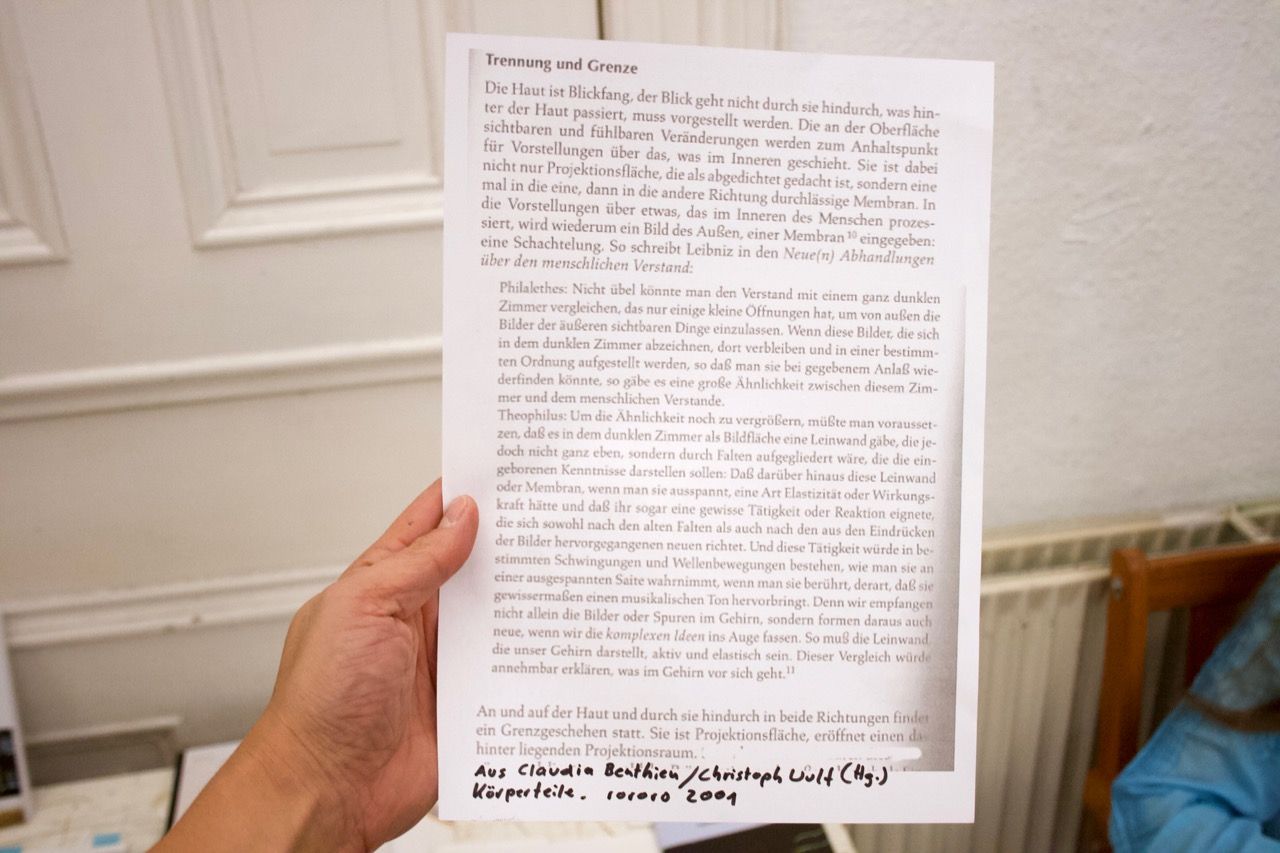 Trennung und Grenze
Die Haut ist Blickfang, der Blick geht nicht durch sie hindurch, was hin-
ter der Haut passiert, muss vorgestellt werden. Die an der Oberfläche
sichtbaren und fühlbaren Veränderungen werden zum Anhaltspunkt
für Vorstellungen über das, was im Inneren geschieht. Sie ist dabei
nicht nur Projektionsfläche, die als abgedichtet gedacht ist, sondern eine
mal in die eine, dann in die andere Richtung durchlässige Membran. In
die Vorstellungen über etwas, das im Inneren des Menschen prozes-
siert, wird wiederum ein Bild des Außen, einer Membran¹⁰ eingegeben:
eine Schachtelung. So schreibt Leibniz in den Neue(n) Abhandlungen
über den menschlichen Verstand:
Philalethes: Nicht übel könnte man den Verstand mit einem ganz dunklen
Zimmer vergleichen, das nur einige kleine Öffnungen hat, um von außen die
Bilder der äußeren sichtbaren Dinge einzulassen. Wenn diese Bilder, die sich
in dem dunklen Zimmer abzeichnen, dort verbleiben und in einer bestimm-
ten Ordnung aufgestellt werden, so daß man sie bei gegebenem Anlaß wie-
derfinden könnte, so gäbe es eine große Ähnlichkeit zwischen diesem Zim-
mer und dem menschlichen Verstande.
Theophilus: Um die Ähnlichkeit noch zu vergrößern, müßte man vorausset-
zen, daß es in dem dunklen Zimmer als Bildfläche eine Leinwand gäbe, die je-
doch nicht ganz eben, sondern durch Falten aufgegliedert wäre, die die ein-
geborenen Kenntnisse darstellen sollen: Daß darüber hinaus diese Leinwand
oder Membran, wenn man sie ausspannt, eine Art Elastizität oder Wirkungs-
kraft hätte und daß ihr sogar eine gewisse Tätigkeit oder Reaktion eignete,
die sich sowohl nach den alten Falten als auch nach den aus den Eindrücken
der Bilder hervorgegangenen neuen richtet. Und diese Tätigkeit würde in be-
stimmten Schwingungen und Wellenbewegungen bestehen, wie man sie an
einer ausgespannten Saite wahrnimmt, wenn man sie berührt, derart, daß sie
gewissermaßen einen musikalischen Ton hervorbringt. Denn wir empfangen
nicht allein die Bilder oder Spuren im Gehirn, sondern formen daraus auch
neue, wenn wir die komplexen Ideen ins Auge fassen. So muß die Leinwand,
die unser Gehirn darstellt, aktiv und elastisch sein. Dieser Vergleich würde
annehmbar erklären, was im Gehirn vor sich geht.¹¹
An und auf der Haut und durch sie hindurch in beide Richtungen findet
ein Grenzgeschehen statt. Sie ist Projektionsfläche, eröffnet einen da-
hinter liegenden Projektionsraum.
Aus Claudia Benthien/Christoph Wulf (Hg.)
Körperteile. rororo 2001